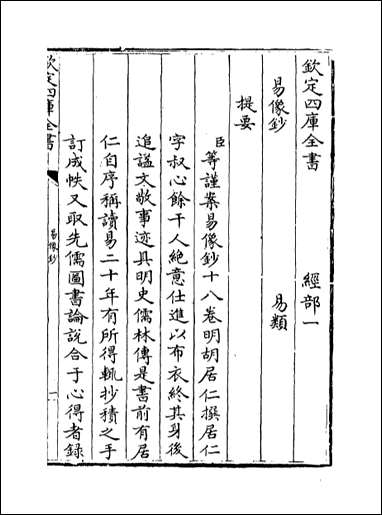 欽定四庫全書　經部一
易像鈔　易類
提要
臣等謹案易像鈔十八卷明胡居仁撰居仁
字叔心餘干人絶意仕進以布衣終其身後
追諡文敬事迹具明史儒林傳是書前有居
仁自序稱讀易二十年有所得輒抄積之手
訂成帙又取先儒圖書論說合于心得者録
欽定四庫全書
易像鈔
一